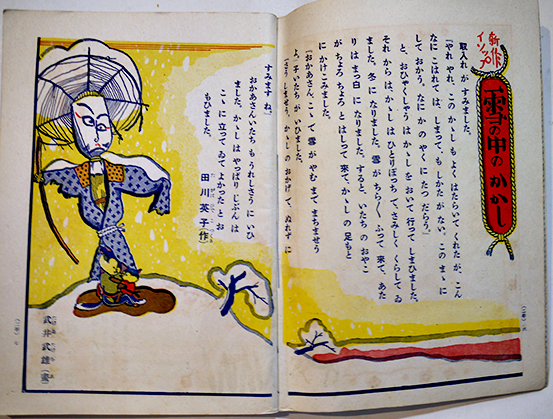 新作イソップ
雪の中のかかし
取入れが すみました。
「やれ やれ、この かゝし も よく はたらいて くれた が、こん
なに こはれて は、しまつて も しかた が ない。この まゝ に
して おかう。なにか の やく に たつ だらう」
と、おひやくしやう は かゝし を おいて 行つて しまひました。
それ から は、かゝし は ひとりぼつち で、さみしく くらして ゐ
ました。冬 に なりました。雪 が ちら〳〵 ふつて 来て、あた
り は まつ白 に なりました。すると、いたち の おやこ
が ちよろ ちよろ と はしつて 来て、かゝし の 足もと
に かけこみました。
「おかあさん、こゝ で 雪 が やむ まで まちませう
よ」子いたち が いひました。
「さう しませう。かゝし の おかげ で、ぬれず に
すみます ね」
おかあさんいたち も うれしさう に いひ
ました。かゝし は やつぱり じぶん は
こゝ に 立つて ゐて よかつた と お
もひました。
田川英子(作)
武井武雄(画)